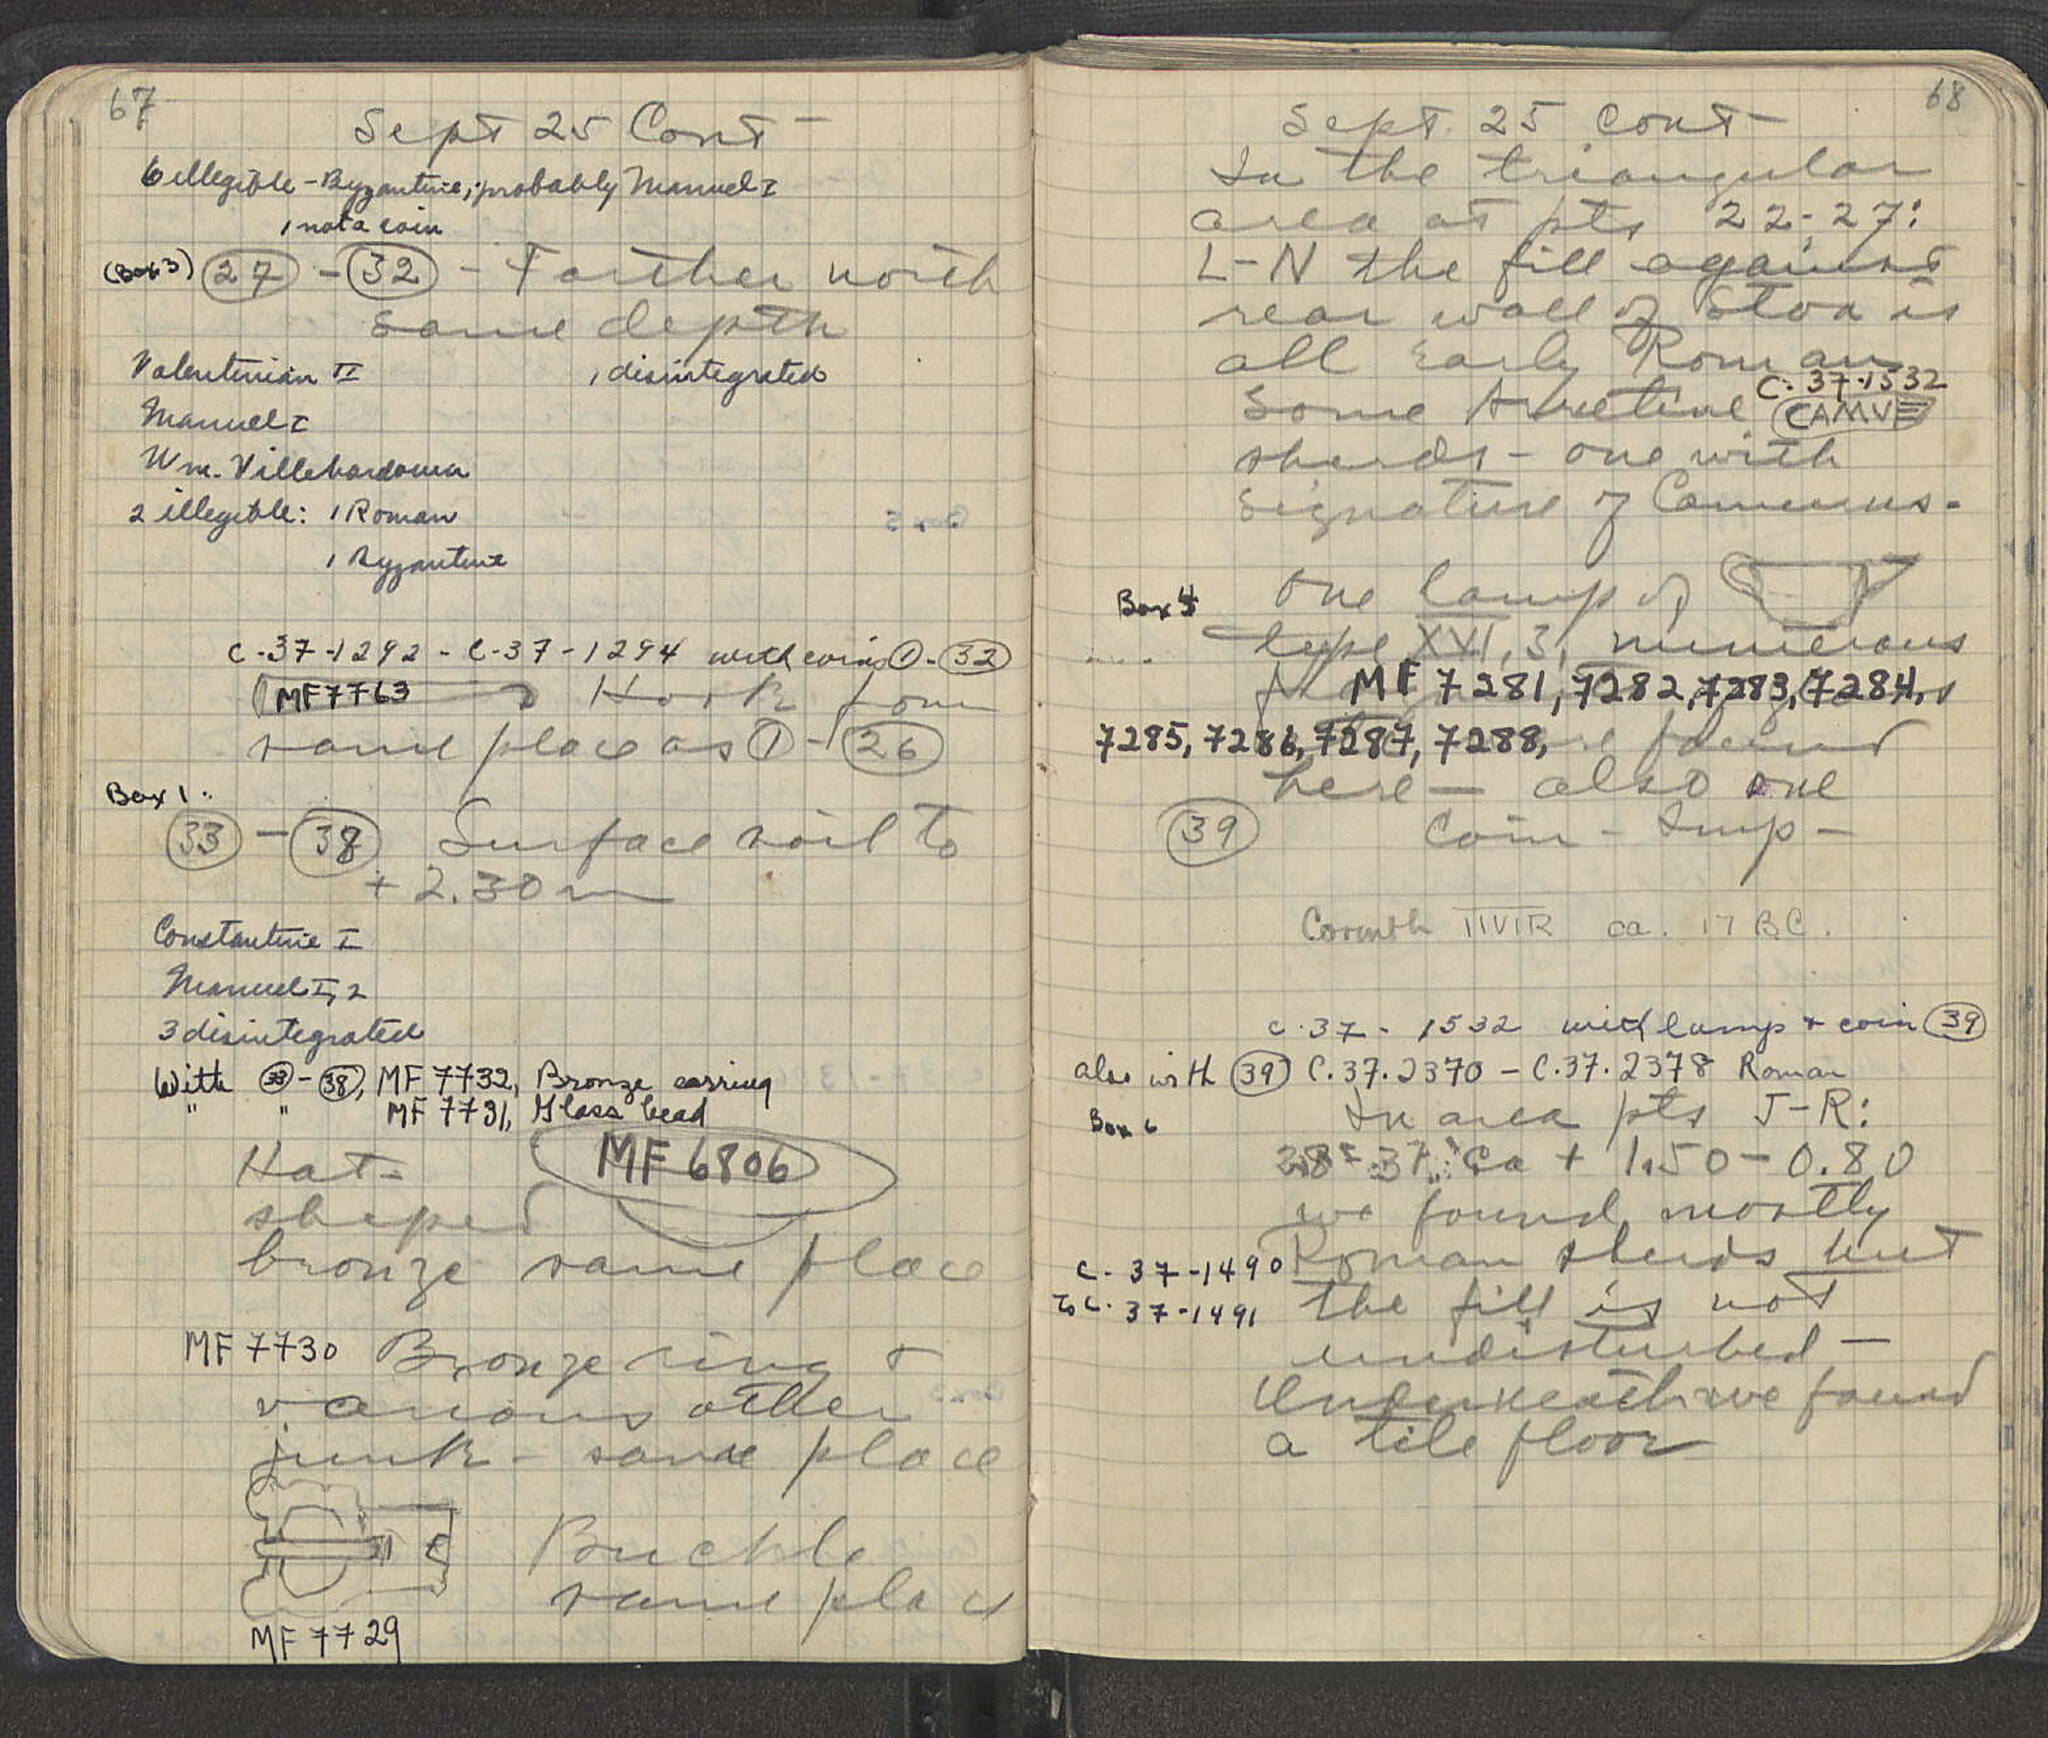 67
Sept 25 Cont -
6 illegible - Byzantine; probably Manuel I
1 not a coin
(Box 3) 27 - 32 - Farther north
same depth
Valentinian II 1 disintegrated
Manuel I
Wm. Villehardouin
2 illegible: 1 Roman
1 Byzantine
C-37-1292 - C-37-1294 with coins 1 - 32
MF 7763 Hook from
same place as 1 - 26
Box 1
33 - 38 Surface soil to
+ 2.30 m
Constantine I
Manuel I, 2
3 disintegrated
With 33 - 38, MF 7732, Bronze earring
" " MF 7731, Glass bead
Hat- MF 6806
shaped
bronze same place
MF 7730 Bronze ring &
various other
junk - same place
Buckle
same place
MF 7729
68
Sept. 25 Cont -
In the triangular
area at pts 22-27:
L-N the fill against
rear wall of Stoa is
all Early Roman
C-37-1532
Some Arretine CAMVE
sherds - one with
signature of Camurus.
One lamp of
Box 4
type XVI, 3, numerous
MF 7281, 7282, 7283, 7284,
7285, 7286, 7287, 7288, found
here - also one
39 Coin - Imp -
Corinth IIVIR ca. 17 B.C.
C-37-1532 with lamp & coin 39
also with 39 C.37.2370 - C.37.2378 Roman
In area pts J-R:
Box 6
28-37: Ca + 1.50 - 0.80
we found mostly
C-37-1490 Roman sherds but
to C-37-1491 the fill is not
undisturbed -
Underneath we found
a tile floor